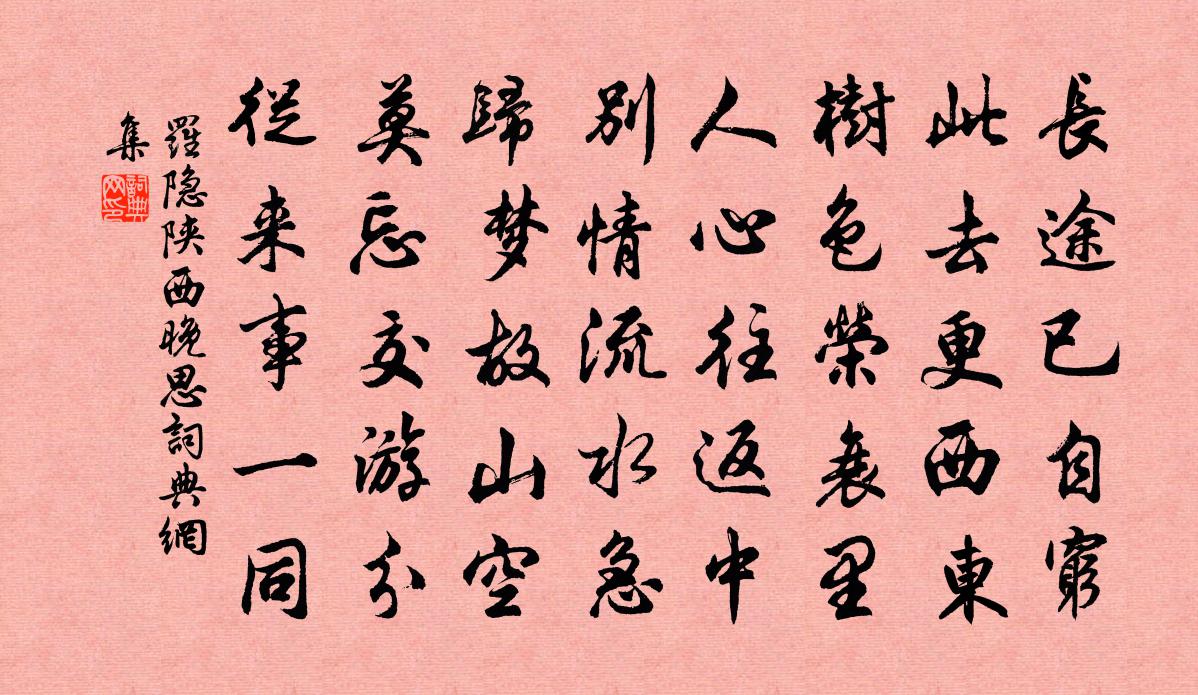 長途已自窮
此去更西東
樹色榮衰里
人心往返中
別情流水急
歸梦故山空
莫忘交游分
從来事一同
羅隐陕西晚思詞典網
集
詞典
网印